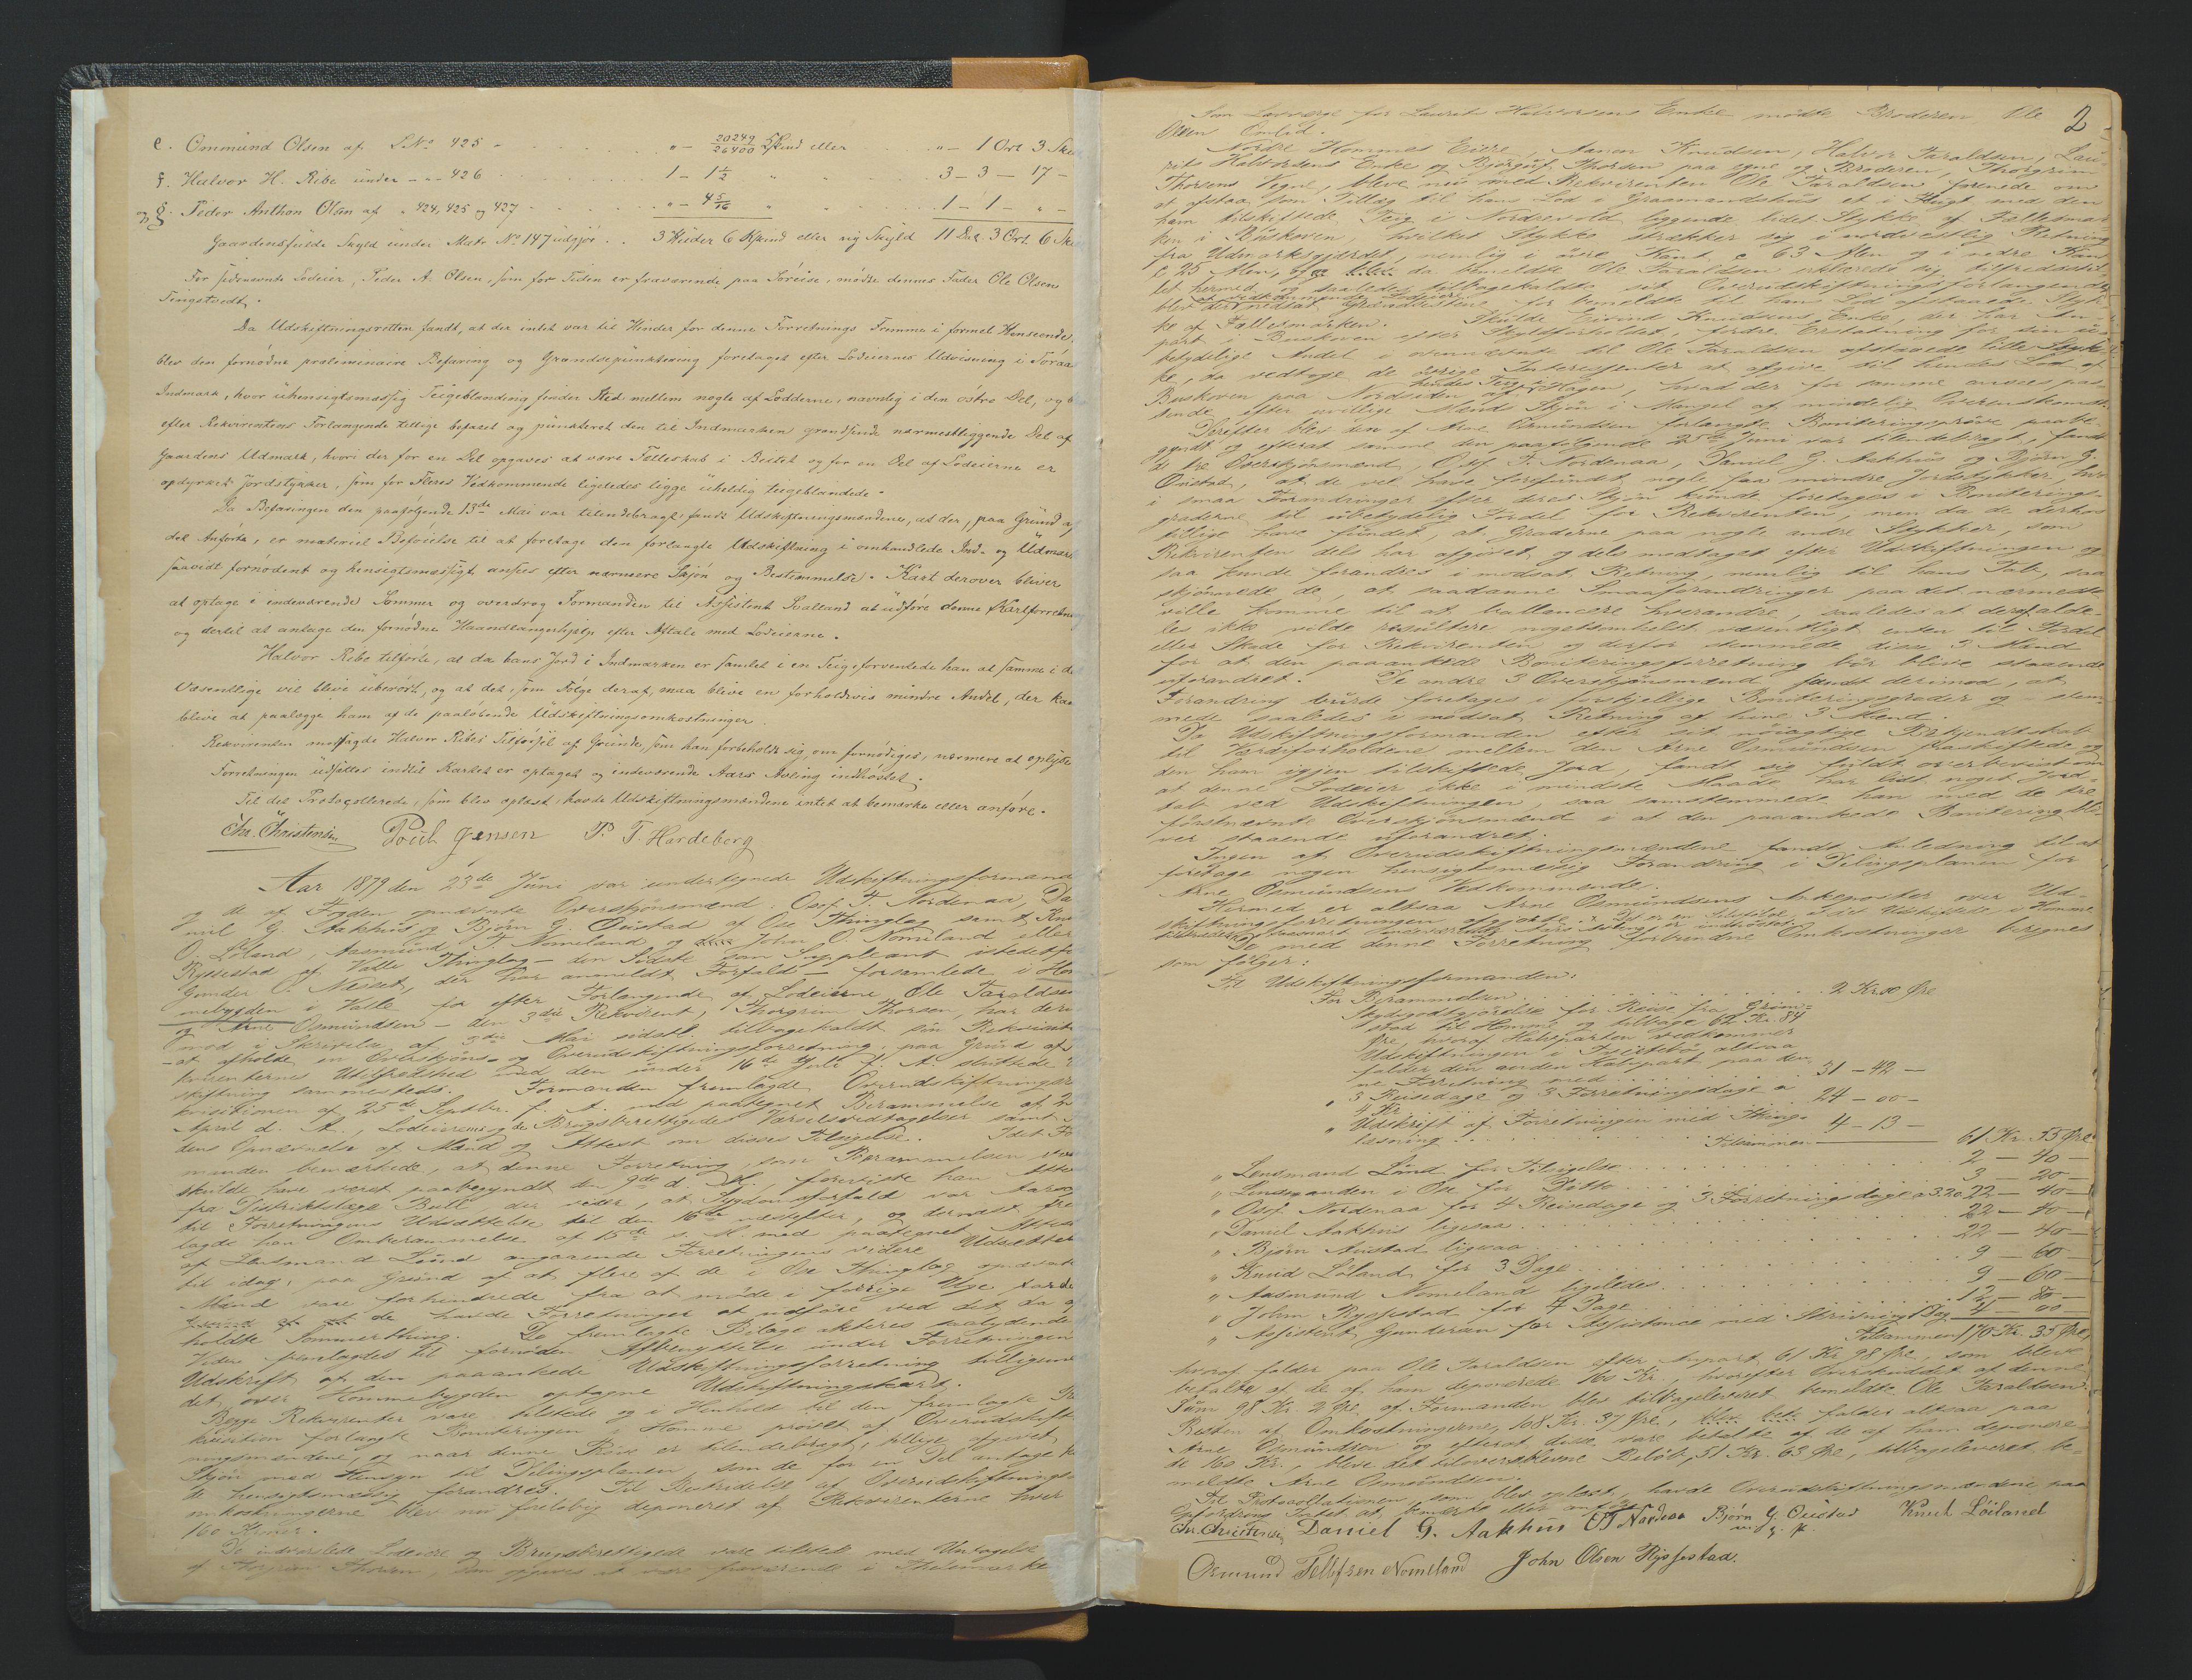 e. Ommund Olsen af L.No 425 " - 20249/26400 Skind eller " - 1 Ort 3 Ski
f. Halvor H. Ribe under - " - 426 1 - 1 1/2 " " 3 - 3 - 17 -
og g. Peder Anthon Olsen af " 424, 425 og 427 " - 4 5/16 " 1 - 1 - " -
Gaardens fulde Skyld under Matr No 147 udgjør . . 3 Huder 6 Skind eller ny Skyld 11 Dal. 3 Ort. 6 Ski
For sidnævnte Lodeier, Peder A. Olsen, som for Tiden er fraværende paa Søreise, mødte dennes Fader Ole Olsen
Tingstvedt.
Da Udskiftningsretten fandt, at der intet var til Hinder for denne Forretnings Fremme i formel Henseende,
blev den fornødne præliminaire Befaring og Grændsepunktering foretaget efter Lodeiernes Udvisning i
Indmark, hvor uhensigtsmæssig Teigeblanding finder Sted mellem nogle af Lodderne, navnlig i den østre Del, og
efter Rekvirentens Forlangende tillige befaret og punkteret den til Indmarken grændsende nærmestliggende Del af
Gaardens Udmark, hvori der for en Del opgaves at være Fælleskab i Beitet og for en Del af Lodeierne er
opdyrket Jordstykker, som for Fleres Vedkommende ligeledes ligge uheldig teigeblandede.
Da Befaringen den paafølgende 13de Mai var tilendebragt, fandt Udskiftningsmændene, at der, paa Grund af
det Anførte, er materiel Beføielse til at foretage den forlangte Udskiftning i omhandlede Ind- og Udmark
saavidt fornødent og hensigtsmæssigt ansees efter nærmere Skjøn og Bestemmelse. Kart derover bliver
at optage i indeværende Sommer og overdrog Formanden til Assistent Svalland at udføre denne Kartforretning
og dertil at antage den fornødne Haandlangerhjelp efter Aftale med Lodeierne.
Halvor Ribe tilførte, at da hans Jord i Indmarken er samlet i en Teig, forventede han at samme i det
Væsentlige vil blive uberørt, og at det, som Følge deraf, maa blive en forholdsvis mindre Andel, der kan
blive at paalægge ham af de paaløbende Udskiftningsomkostninger.
Rekvirenten modsagde Halvor Ribes Tilførsel af Grunde, som han forbeholdt sig, om fornødiges, nærmere at oplyse
Forretningen udsættes indtil Kartet er optaget og indeværende Aars Avling indhøstet.
Til det Protocollerede, som blev oplæst, havde Udskiftningsmændene intet at bemærke eller anføre.
Chr. Christensen Poul Jensen P. T. Hardeberg
Aar 1879 den 23de Juni var undertegnede Udskiftningsformand
og de af Fogden opnævnte Overskjønsmænd: Osof T. Nordenaa, Da
niel G. Aakhus og Bjørn G. Oustad af Ose Thinglag samt Knud
O. Løland, Aasmund T. Nomeland og John O. Nomeland eller
Ryssestad af Valle Thinglag - den Sidste som Suppleant istedetfor
Gunder O. Messet, der har anmeldt Forfald - forsamlede i Hom
mebygden i Valle for efter Forlangende af Lodeierne Ole Taraldsen
og Arne Osmundsen - den 3die Rekvirent, Thorgrim Thorsen, har derimod
i Skrivelse af Mai sidstl. tilbagekaldt sin Rekvisition
- at afholde en Overskjøns- og Overudskiftningsforretning, paa Grund af
kvirenternes Utilfredshed med den under 16de Juli f. A. sluttede
skiftning sammesteds. Formanden fremlagde Overudskiftningsre
kvisitionen af 25de Septbr. f. A. med paategnet Berammelse af
April d. A., Lodeiernes og de Brugsberettigedes Varselsvedtagelser samt
dens Opnævnelse af Mænd og Attest om disses Tilsigelse. Idet For
manden bemærkede, at denne Forretning, som Berammelsen viser
skulde have været paabegyndt den 9de d. M., foreviste han Attest
fra Distriktslæge Bull, der viser, at Sygdomsforfald var Aarsag
til Forretningens Udsættelse til den 16de næstefter, og dernæst frem
lagde han Omberammelse af 15de s. M. med paategnet Attest
af Lensmand Lund angaaende Forretningens videre Udsættelse
til idag, paa Grund af at flere af de i Ose Thinglag opnævnte
Mænd vare forhindrede fra at møde i forrige Uge
de havde Forretninger at udføre ved det da
holdte Sommerthing. De fremlagte Bilage akteres saalydende
Videre fremlagdes til fornøden Afbenyttelse under Forretningen
Udskrift af den paaankede Udskiftningsforretning tilligemed
det over Hommebygden optagne Udskiftningskart.
Begge Rekvirenter vare tilstede og i Henhold til den fremlagte Re
kvisition forlangte Boniteringen i Homme prøvet af Overudskift
ningsmændene, og naar denne Prøve er tilendebragt, tillige afgivet
Skjøn med Hensyn til Delingsplanen, som de for en Del antage
hensigtsmæssig forandres. Til Bestridelse af Overudskiftnings
omkostningerne blev nu foreløbig deponeret af Rekvirenterne hver
160 Kroner.
De indvarslede Lodeiere og Brugsberettigede vare tilstede med Undtagelse
af Thorgrim Thorsen, der opgaves at være fraværende i Thelemarken
2
Som Laugværge for Laurits Halvorsens Enke mødte Broderen Ole
Olsen Omlid.
Nordre Hommes Eiere, Aanen Knudsen, Halvor Taraldsen, Lau-
rits Halvorsens Enke og Bjørguf Thorsen paa egne og Broderen, Thorgrim
Thorsens Vegne, bleve nu med Rekvirenten Ole Taraldsen forenede om
at afstaa som Tillæg til hans Lod i Graamandshus et i Høigt med den
ham tilskiftede Teig i Nordrevold liggende lidet Stykke af Fællesmar-
ken i Buskoven, hvilket Stykke strækker sig i nordvestlig Retning
fra Udmarksgjærdet, nemlig i øvre Kant c 63 Alen og i nedre Kant
c 25 Alen, og da bemeldte Ole Taraldsen erklærede sig tilfredsstil-
let hermed og saaledes tilbagekaldte sit Overudskiftningsforlangende,
blev der nedsat Grændsestene for bemeldte til hans Lod afstaaede Styk-
ke af Fællesmarken. Skulde Eivind Knudsens Enke, der har An-
part i Buskoven efter Skyldforholdet, fordre Erstatning for sin u-
betydelige Andel i ovennævnte til Ole Taraldsen afstaaede lidet Styk-
ke, da vedtoge de øvrige Interessenter at afgive til hendes Lod af
Buskoven paa Nordsiden af hendes Teig i Hagen, hvad der for samme ansees pas-
sende efter uvillige Mænds Skjøn i Mangel af mindelig Overenskomst.
Derefter blev den af Arne Osmundsen forlangte Boniteringsprøve paabe-
gyndt og efterat samme den paafølgende 25de Juni var tilendebragt, fandt
de tre Overskjønsmænd, Osof T. Nordenaa, Daniel G. Aakhus og Bjørn G.
Oustad, at de vel have forefundet nogle faa mindre Jordstykker, hvor
i smaa Forandringer efter deres Skjøn kunde foretages i Boniterings-
graderne til ubetydelig Fordel for Rekvirenten, men da de derhos
tillige have fundet, at Graderne paa nogle andre Stykker, som
Rekvirenten dels har afgivet og dels modtaget efter Udskiftningen og
saa kunde forandres i modsat Retning, nemlig til hans Tab, saa
skjønnede de, at saadanne Smaaforandringer paa det nærmeste
ville komme til at ballancere hverandre, saaledes at der
ikke vilde resultere nogetsomhelst væsentligt enten til Fordel
eller Skade for Rekvirenten og derfor stemmede disse 3 Mænd
for at den paaankede Boniteringsforretning bør blive staaende
uforandret. De andre 3 Overskjønsmænd fandt derimod, at
Forandring burde foretages i forskjellige Boniteringsgrader og stem-
mede saaledes i modsat Retning af hine 3 Mænd.
Da Udskiftningsformanden efter sit nøiagtige Bekjendtskab
til Værdiforholdene mellem den Arne Osmundsen fraskiftede og
den ham igjen tilskiftede Jord, fandt sig fuldt overbevist om
at denne Lodeier ikke i mindste Maade har lidt noget Jord-
tab ved Udskiftningen, saa samstemmede han med de tre
førstnævnte Overskjønsmænd i at den paaankede Bonitering bli-
ver staaende uforandret.
Ingen af Overudskiftningsmændene fandt Anledning til at
foretage nogen hensigtsmæssig Forandring i Delingsplanen for
Arne Osmundsens Vedkommende.
Hermed er altsaa Arne Osmundsens Ankeposter over Ud-
skiftningsforretningen afgjorte.
De med denne Forretning forbundne Omkostninger beregnes
som følger:
Til Udskiftningsformanden:
For Berammelsen . . . 2 Kr. 00 Øre
" Skydsgodtgjørelse for Reise fra Grim-
stad til Homme og tilbage 62 Kr. 84
Øre, hvoraf Halvparten vedkommer
Udskiftningen i altsaa
falder den anden Halvpart paa den-
ne Forretning med . . . 31 - 42 -
" 3 Reisedage og 3 Forretningsdage a
4 Kr. . . . 24 - 00 -
" Udskrift af Forretningen med Thing-
læsning . . . 4 - 13 -
Tilsammen 61 Kr. 55 Øre
" Lensmand Lund for Tilsigelse . . . 2 - 40 -
" Lensmanden i Ose for Ditto . . . 3 - 20 -
" Osof Nordenaa for 4 Reisedage og 3 Forretningsdage a 3.20 22 - 40 -
" Daniel Aakhus ligesaa . . . 22 - 40 -
" Bjørn Oustad ligesaa . . . 22 - 40 -
" Knud Løland for 3 Dage . . . 9 - 60 -
" Aasmund Nomeland ligeledes . . . 9 - 60 -
" John Ryssestad for 4 Dage . . . 12 - 80 -
" Assistent Gundersen for Assistance med Skrivning 1 Dag 4 - 00 -
Tilsammen 170 Kr. 35 Øre,
hvoraf falder paa Ole Taraldsen efter Anpart 61 Kr. 98 Øre, som bleve
betalte af de af ham deponerede 160 Kr., hvorefter Overskuddet af denne
Sum 98 Kr. 2 Øre af Formanden blev tilbageleveret bemeldte Ole Taraldsen.
Resten af Omkostningerne, 108 Kr. 37 Øre, falder altsaa paa
Arne Osmundsen og efterat disse vare betalte af de af ham deponere-
de 160 Kr., blev det tiloversblevne Beløb, 51 Kr. 63 Øre, tilbageleveret be-
meldte Arne Osmundsen.
Til Protocollationen, som blev oplæst, havde Overudskiftningsmændene paa
Opfordring Intet at bemærke eller anføre.
Chr. Christensen Daniel G. Aakhus OT Nordenaa Bjørn G. Oustad Knud Løiland
m. f. P.
Osmund Tellefsen Nomeland John Olsen Ryssestad.